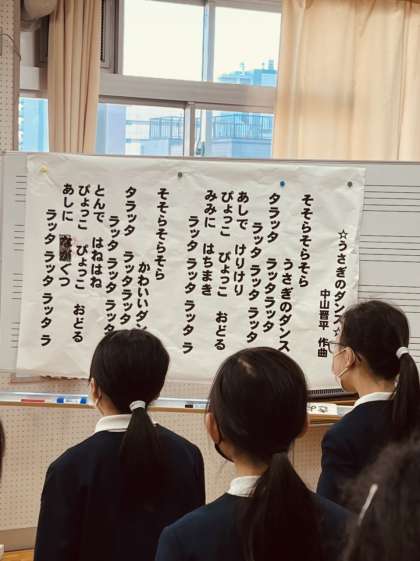 ☆うさぎのダンス☆
中山晋平 作曲
そそらそらそら
うさぎのダンス
タラッタ ラッタラッタ
ラッタ ラッタ ラッタ
あしで けりけり
ぴょっこ ぴょっこ おどる
みみに はちまき
ラッタ ラッタ ラッタ ラ
そそらそらそら
かわいいダン
タラッタ ラッタラッタ
ラッタ ラッタ ラッタ
とんで はねはね
ぴょっこ ぴょっこ おどる
あしに ながぐつ
ラッタ ラッタ ラッタ ラ